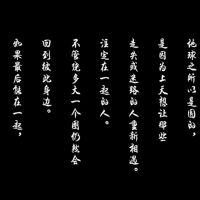 地球之所以是圆的，
是因为上天想让那些
走失或迷路的人重新相遇。
注定在一起的人，
不管绕多大一个圈仍然会
回到彼此身边。
如果最后能在一起，